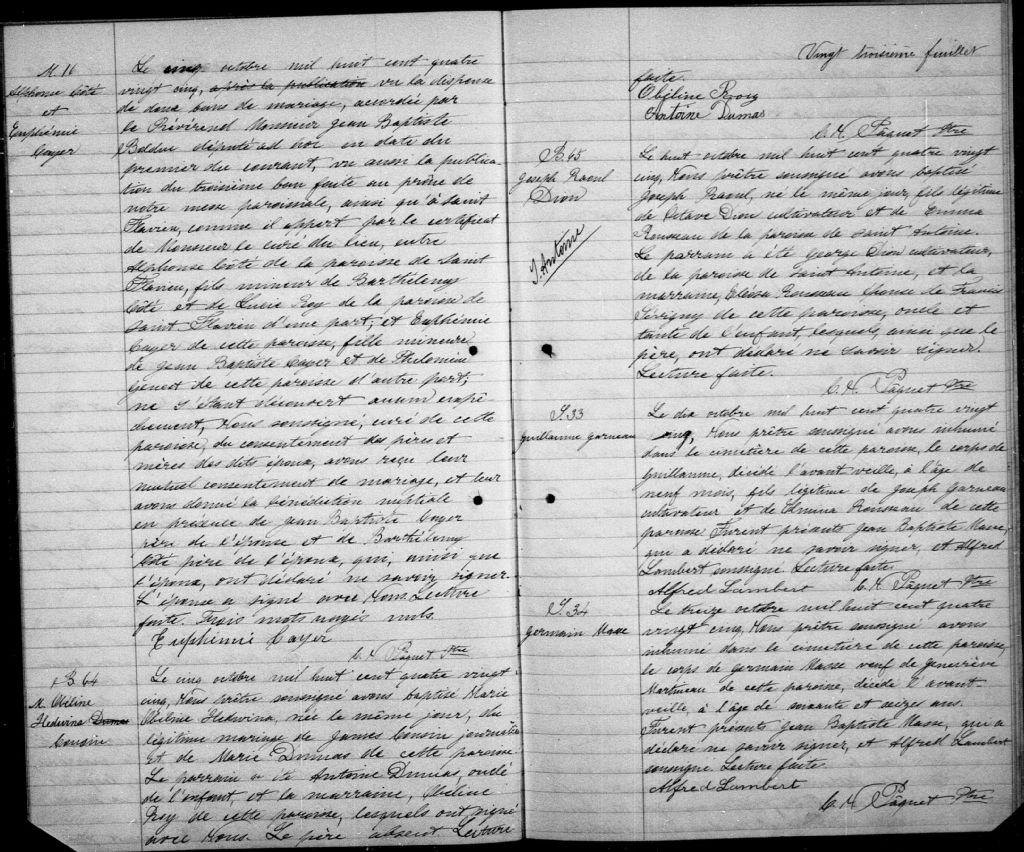 M. 16
Alphonse Côté
et
Euphémie
Cayer
Le cinq octobre mil huit cent quatre
vingt cinq, après la publication vu la dispense
de deux bans de mariage, accordée par
le Révérend Monsieur Jean Baptiste
Bolduc député ad hoc en date du
premier du courant, vu aussi la publica
tion du troisième ban faite au prône de
notre messe paroissiale, ainsi qu'à Saint
Flavien, comme il appert par le certificat
de Monsieur le curé du lieu, entre
Alphonse Côté de la paroisse de Saint
Flavien, fils mineur de Barthélemy
Côté et de Lucie Roy de la paroisse de
Saint Flavien d'une part; et Euphémie
Cayer de cette paroisse, fille mineure
de Jean Baptiste Cayer et de Philomène
Genest de cette paroisse d'autre part;
ne s'étant découvert aucun empê
chement, Nous soussigné, curé de cette
paroisse, du consentement des pères et
mères des dits époux, avons reçu leur
mutuel consentement de mariage, et leur
avons donné la bénédiction nuptiale
en présence de Jean Baptiste Cayer
père de l'épouse et de Barthélemy
Côté père de l'époux, qui, ainsi que
l'époux, ont déclaré ne savoir signer.
L'épouse a signé avec Nous. Lecture
faite. Trois mots rayés nuls.
Euphémie Cayer
C. H. Pâquet Ptre
B. 64
M. Obéline
Hedwina Dumas
Cousin
Le cinq octobre mil huit cent quatre vingt
cinq, Nous prêtre soussigné avons baptisé Marie
Obéline Hedwina, née le même jour, du
légitime mariage de James Cousin journalier
et de Marie Dumas de cette paroisse
Le parrain a été Antoine Dumas, oncle
de l'enfant, et la marraine, Obéline
Roy de cette paroisse, lesquels ont signé
avec Nous. Le père absent Lecture
Vingt troisième feuillet
faite.
Obéline Rooy
Antoine Dumas
C. H. Pâquet Ptre
B. 65
Joseph Raoul
Dion
S. Antoine
Le huit octobre mil huit cent quatre vingt
cinq, Nous prêtre soussigné avons baptisé
Joseph Raoul, né le même jour, fils légitime
de Octave Dion cultivateur et de Emma
Rousseau de la paroisse de Saint Antoine.
Le parrain a été George Dion cultivateur,
de la paroisse de Saint Antoine, et la
marraine, Eléosa Rousseau épouse de Francis
Sévigny de cette paroisse, oncle et
tante de l'enfant, lesquels, ainsi que le
père, ont déclaré ne savoir signer.
Lecture faite.
C. H. Pâquet Ptre
S. 33
Guillaume Garneau
Le dix octobre mil huit cent quatre vingt
cinq, Nous prêtre soussigné avons inhumé
dans le cimetière de cette paroisse, le corps de
Guillaume, décédé l'avant veille, à l'âge de
neuf mois, fils légitime de Joseph Garneau
cultivateur et de Elmina Rousseau de cette
paroisse Furent présents Jean Baptiste Masse,
qui a déclaré ne savoir signer, et Alfred
Lambert soussigné Lecture faite
Alfred Lambert C. H. Pâquet Ptre
S. 34
Germain Masse
Le treize octobre mil huit cent quatre
vingt cinq, Nous prêtre soussigné avons
inhumé dans le cimetière de cette paroisse,
le corps de Germain Masse veuf de Geneviève
Martineau de cette paroisse, décédé l'avant
veille, à l'âge de soixante et seize ans.
Furent présents Jean Baptiste Masse, qui a
déclaré ne savoir signer, et Alfred Lambert
soussigné Lecture faite
Alfred Lambert
C. H. Pâquet Ptre